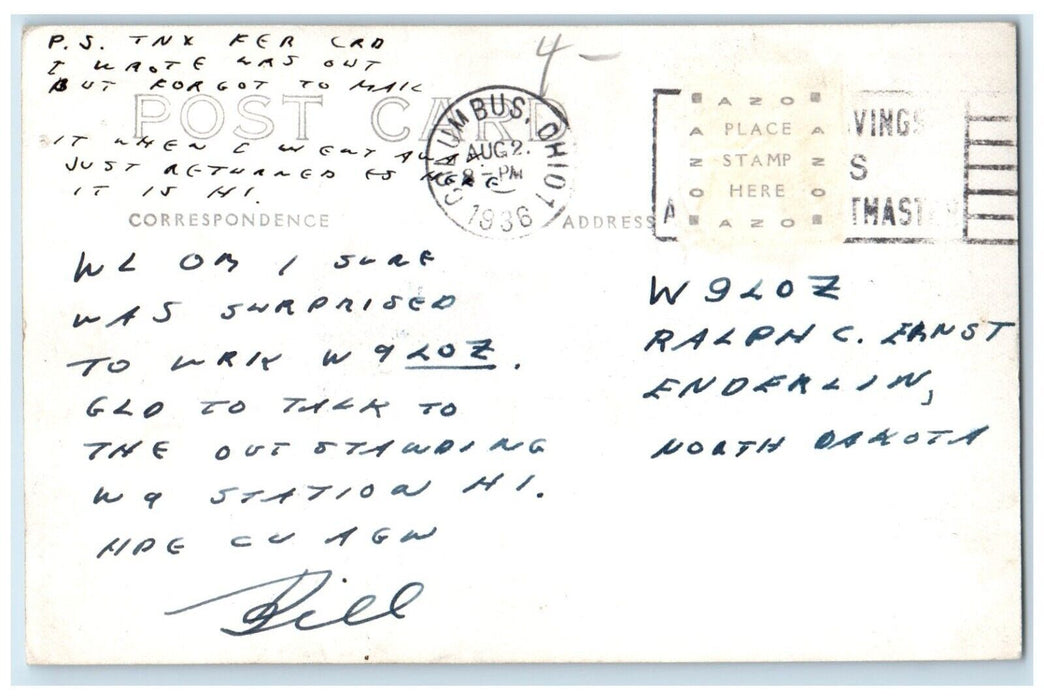 P.S. TNX FER CRD
I WROTE WAS OUT
BUT FORGOT TO MAIL
IT WHEN I WENT AWAY
JUST RETURNED ES HERE
IT IS HI.
4 —
POST CARD
COLUMBUS, OHIO 1
AUG 2.
8 - PM
1936
VINGS
S
TMAST
AZO
PLACE
STAMP
HERE
AZO
CORRESPONDENCE
ADDRESS
WL OM I SURE
WAS SURPRISED
TO WRK W9LOZ.
GLD TO TALK TO
THE OUTSTANDING
W9 STATION HI.
HPE CU AGN
Bill
W9LOZ
RALPH C. ERNST
ENDERLIN,
NORTH DAKOTA